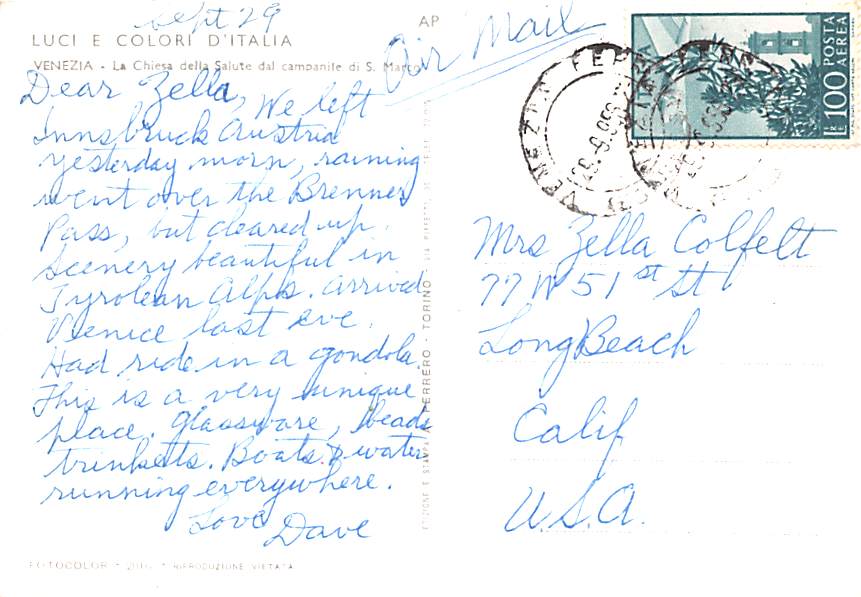 Sept 29
AP
LUCI E COLORI D'ITALIA
Air Mail
VENEZIA - La Chiesa della Salute dal campanile di S. Marco
Dear Zella, We left
Innsbruck Austria
yesterday morn, raining
went over the Brenner
Pass, but cleared up.
Scenery beautiful in
Tyrolean Alps. Arrived
Venice last eve.
Had ride in a gondola.
This is a very unique
place. Glassware, beads
trinkets. Boats & water
running everywhere.
Love Dave
FOTOCOLOR * RIPRODUZIONE VIETATA
EDIZIONE E STAMPA A. FERRERO - TORINO
100 POSTA AEREA
LIRE
VENEZIA FERROVIA
Mrs Zella Colfelt
77 W 51st St
Long Beach
Calif
U.S.A.